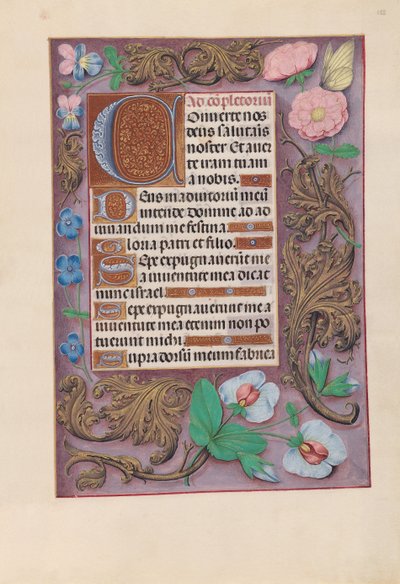 Ad cōpletoriū
Conuerte nos
deus salutaris
noster Et auer
te iram tuam
a nobis.
Deus in adiutoriū meū
intende domine ad ad
iuuandum me festina.
Gloria patri et filio.
Sepe expugnauerūt me
a iuuentute mea dicat
nunc israel.
Sepe expugnauerunt me a
iuuentute mea etenim non po
tuerunt michi.
Supra dorsū meum fabrica